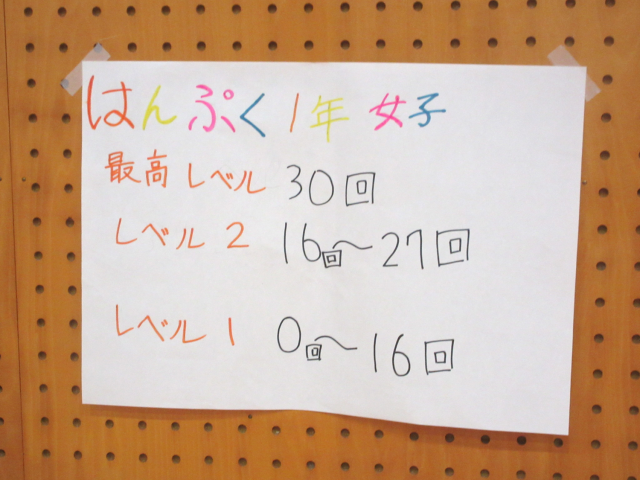 はんぷく1年女子
最高レベル 30回
レベル2 16回〜27回
レベル1 0回〜16回